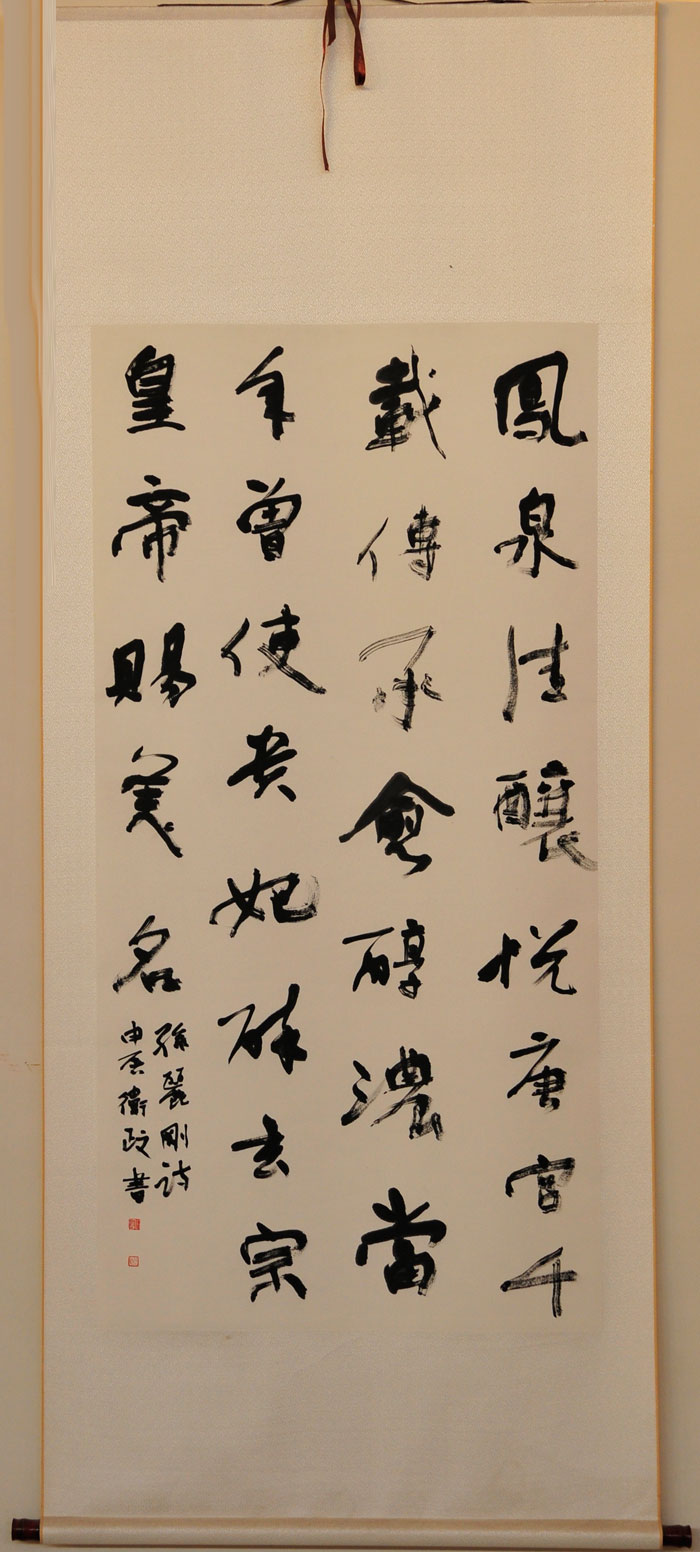 鳳泉佳釀悅唐宮千
載傳承愈醇濃當
年曾使貴妃醉玄宗
皇帝賜美名
孫麗剛詩
申辰衛政書